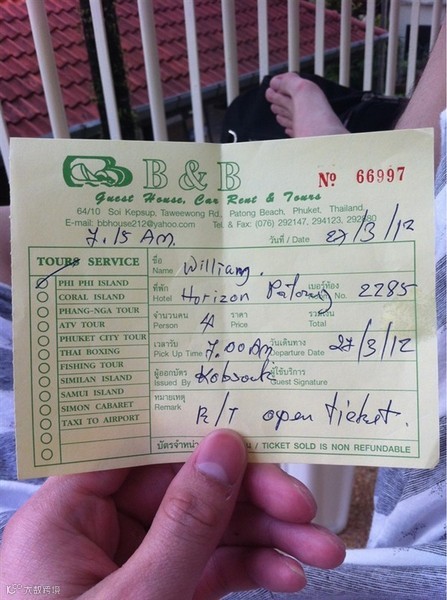 B & B
Guest House, Car Rent & Tours
Nº 66997
64/10 Soi Kepsup, Taweewong Rd., Patong Beach, Phuket, Thailand.
E-mail: bbhouse212@yahoo.com Tel. & Fax: (076) 292147, 294123,
7.15 AM. วันที่ / Date 27/3/12
TOURS SERVICE
PHI PHI ISLAND
CORAL ISLAND
PHANG-NGA TOUR
ATV TOUR
PHUKET CITY TOUR
THAI BOXING
FISHING TOUR
SIMILAN ISLAND
SAMUI ISLAND
SIMON CABARET
TAXI TO AIRPORT
ชื่อ
Name William.
ที่พัก เบอร์ห้อง
Hotel Horizon Patong No. 2285
จำนวนคน ราคา รวมเงิน
Person 4 Price Total
เวลารับ วันเดินทาง
Pick Up Time 7.00 AM Departure Date 27/3/12
ผู้ออกบัตร ผู้ใช้บริการ
Issued By Guest Signature
หมายเหตุ
Remark R/T open ticket.
บัตรจำหน่า น / TICKET SOLD IS NON REFUNDABLE
大数跨境